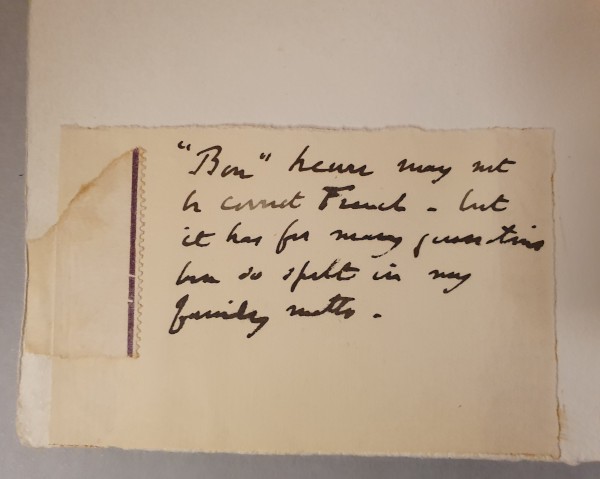 "Bon" heure may not
be correct French - but
it has for many generations
been so spelt in my
family motto.